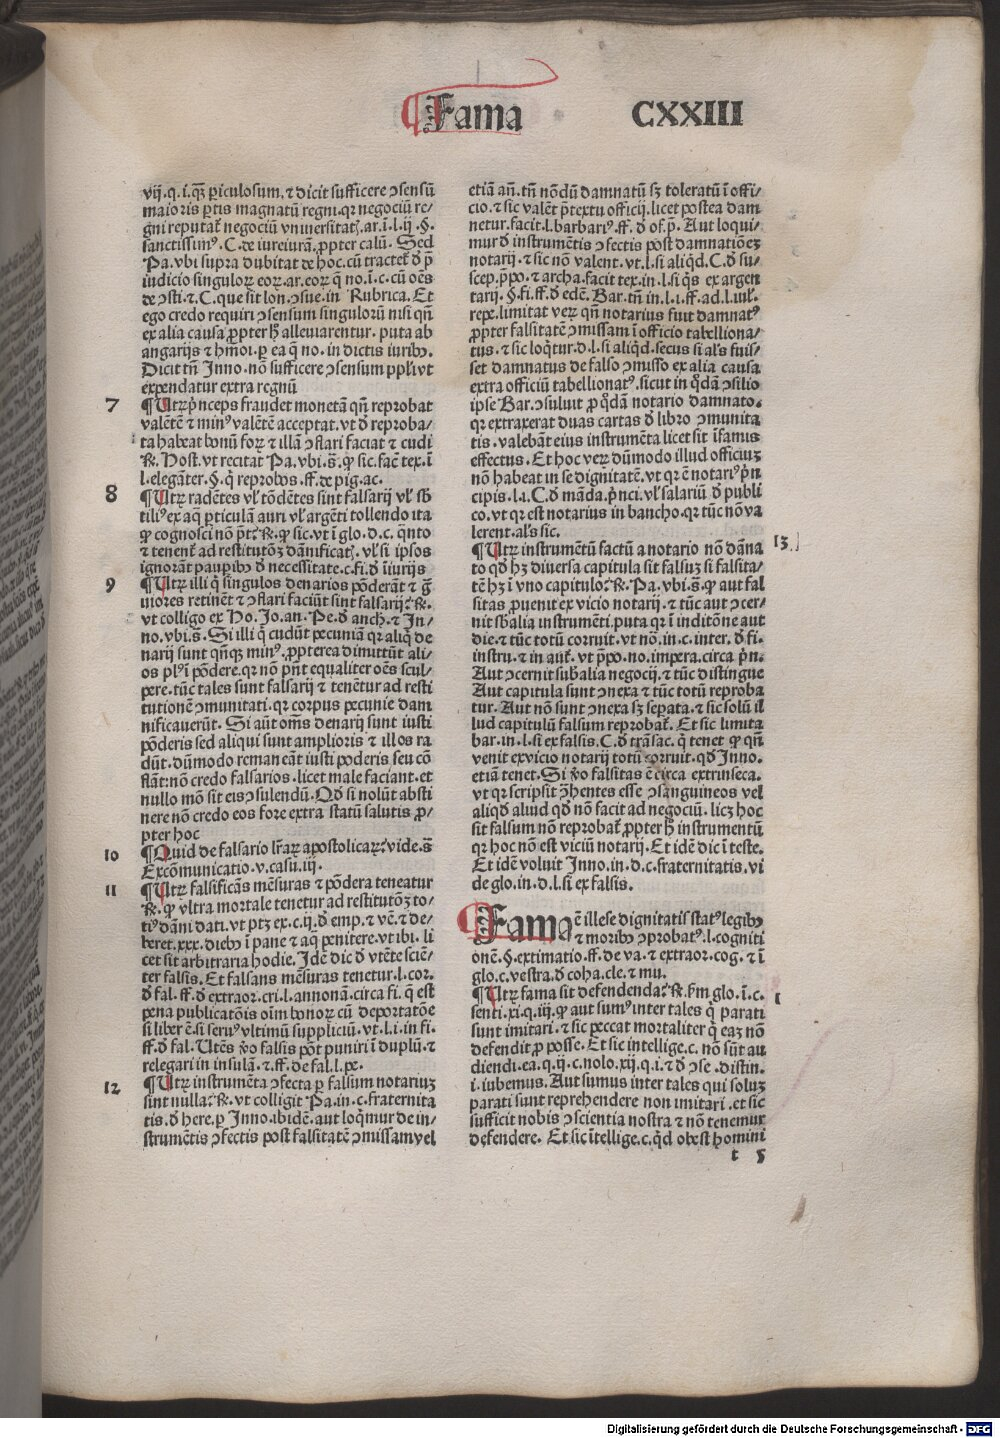 Fama CXXIII
vij.q.i.qꝫ ꝑiculosum.⁊ dicit sufficere ↄsensū
maioris ꝑtis magnatū regni.qꝛ negociū re⸗
gni reputat᷑ negociū vniuersitatꝭ.ar.i.l.ij.§.
sanctissimꝰ.C.de iureiurā.ꝓpter calū. Sed
Pa.vbi supra dubitat de hoc.cū tractet᷑ đ p̄
iudicio singuloꝝ eoꝝ.ar.eoꝝ q̄ no.ī.c.cū oēs
de ↄsti.⁊.C.que sit lon.ↄsue.in Rubrica. Et
ego credo requiri ↄsensum singuloꝝ nisi qn̄
ex alia causa ꝓpter hꝫ alleuiarentur. puta ab
angarijs ⁊ hm̄oi.ꝑ ea q̄ no. in dictis iuribꝫ.
Dicit tn̄ Inno.nō sufficere ↄsensum ppl'i vt
expendatur extra regnū
7 ¶Utꝝ p̄nceps fraudet monetā qn̄ reprobat
valētē ⁊ minꝰ valētē acceptat.vt đ reproba⸗
ta habeat bonū foꝝ ⁊ illā ↄflari faciat ⁊ cudi
℞. Host. vt recitat Pa.vbi.s̄.ꝙ sic.facē tex.ī
l.eleganter.§.q̄ reprobos.ff.de pig.ac.
8 ¶Utꝝ radētes vl' tōdētes sint falsarij vl' sb̄
tiliꝰ ex aqͣ ꝑticulā auri vl' argēti tollendo ita
ꝙ cognosci nō pōt.℞.ꝙ sic.vt ī glo.d.c. qn̄to
⁊ tenent᷑ ad restitutōꝫ dānificatꝭ.vl' si ipsos
ignorāt pauꝑibꝫ đ necessitate.c.fi.đ īiurijs
9 ¶Utꝝ illi q̄ singulos denarios pōderāt ⁊ gͣ
uiores retinēt ⁊ ↄflari faciūt sint falsarij.℞.
vt colligo ex Ho.Jo.an.Pe.đ anch.⁊ In⸗
no.vbi.s̄. Si illi q̄ cudūt pecuniā qꝛ aliq̄ de
narij sunt qn̄qꝫ minꝰ.ꝓpterea dimittūt ali⸗
os plꝰ ī pōdere.qꝛ nō pn̄t equaliter oēs scul⸗
pere.tūc tales sunt falsarij ⁊ tenētur ad resti
tutionē ↄmunitati.qꝛ corpus pecunie dam
nificauerūt. Si aūt om̄s denarij sunt iusti
pōderis sed aliqui sunt amplioris ⁊ illos ra
dūt.dūmodo remaneāt iusti pōderis seu cō
flāt:nō credo falsarios.licet male faciant.et
nullo mō sit eis ↄsulendū. Qđ si nolūt absti
nere nō credo eos fore extra statū salutis ꝓ⸗
pter hoc
10 ¶Quid de falsario l'raꝝ apostolicaꝝ.vide.s̄
Excōmunicatio.v.casu.iij.
11 ¶Utꝝ falsificās mēsuras ⁊ pōdera teneatur
℞.ꝙ vltra mortale tenetur ad restitutōꝫ to⸗
tiꝰ dāni dati.vt ptꝫ ex.c.ij.đ emp.⁊ vē.⁊ de⸗
beret.xxx.diebꝫ ī pane ⁊ aqͣ penitere.vt ibi. li
cet sit arbitraria hodie. Idē dic đ vtēte sciē⸗
ter falsis. Et falsans mēsuras tenetur.l.cor.
đ fal.ff.đ extraor.cri.l.annonā.circa fi. q̄ est
pena publicatōis oīm bonoꝝ cū deportatōe
si liber ē.si seruꝰ vltimū suppliciū.vt.l.i.in fi.
ff.đ fal. Utēs v̄o falsis pōt puniri ī duplū.⁊
relegari in insulā.⁊.ff.de fal.l.pe.
12 ¶Utꝝ instrumēta ↄfecta ꝑ falsum notariuꝫ
sint nulla.℞.vt colligit Pa.in.c.fraternita
tis.đ here.ꝑ Inno.ibidē.aut loqͥmur de in⸗
strumētis ↄfectis post falsitatē ↄmissam vel
etiā an̄.tn̄ nōdū damnatū sꝫ toleratū ī offi⸗
cio.⁊ sic valēt p̄textu officij.licet postea dam
netur.facit.l.barbariꝰ.ff.đ of.p̄. Aut loqui⸗
mur đ instrumētis ↄfectis post damnationeꝫ
notarij.⁊ sic nō valent.vt.l.si aliqđ.C.đ su⸗
scep.p̄po.⁊ archa.facit tex.in.l.si qͥs ex argen
tarij.§.fi.ff.đ edē. Bar.tn̄ in.l.i.ff.ad.l.iul'.
repe.limitat veꝝ qn̄ notarius fuit damnatꝰ
ꝓpter falsitatē ↄmissam ī officio tabelliona⸗
tus.⁊ sic loqͥtur.d.l.si aliqđ.secus si al's fuis⸗
set damnatus de falso ↄmisso ex alia causa
extra officiū tabellionatꝰ.sicut in qͦdā ↄsilio
ipse Bar.ↄsuluit ꝓ qͦdā notario damnato.
qꝛ extraxerat duas cartas đ libro ↄmunita
tis.valebāt eius instrumēta licet sit īfamus
effectus. Et hoc veꝝ dūmodo illud officiuꝫ
nō habeat in se dignitatē.vt qꝛ ē notariꝰ p̄n
cipis.l.i.C.đ māda.p̄nci.vl' salariū đ publi
co.vt qꝛ est notarius in bancho.qꝛ tūc nō va
lerent.al's sic.
¶Utꝝ instrumētū factū a notario nō dāna 13
to qđ hꝫ diuersa capitula sit falsuꝫ si falsita⸗
tē hꝫ ī vno capitulo.℞.Pa.vbi.s̄.ꝙ aut fal
sitas ꝓuenit ex vicio notarij.⁊ tūc aut ↄcer⸗
nit sb̄alia instrumēti.puta qꝛ ī inditōne aut
die.⁊ tūc totū corruit.vt nō.in.c.inter.đ fi.
instru.⁊ in aut.vt p̄po.no.impera.circa p̄n.
Aut ↄcernit sub̄alia negocij.⁊ tūc distingue
Aut capitula sunt ↄnexa ⁊ tūc totū reproba
tur. Aut nō sunt ↄnexa sꝫ sepata.⁊ sic solū il
lud capitulū falsum reprobat᷑. Et sic limita
bar.in.l.si ex falsis.C.đ trāsac.q̄ tenet ꝙ qn̄
venit ex vicio notarij totū corruit.qđ Inno.
etiā tenet. Si v̄o falsitas ē circa extrinseca.
vt qꝛ scripsit ↄ̄hentes esse ↄsanguineos vel
aliqđ aliud qđ nō facit ad negociū.licꝫ hoc
sit falsum nō reprobat᷑ ꝓpter hꝫ instrumentū
qꝛ hoc nō est viciū notarij. Et idē dic ī teste.
Et idē voluit Inno.in.d.c.fraternitatis.vi
de glo.in.d.l.si ex falsis.
Fama ē illese dignitatis statꝰ legibꝫ
⁊ moribꝫ ↄprobatꝰ.l.cogniti
onē.§.extimatio.ff.de va.⁊ extraor.cog.⁊ ī
glo.c.vestra.đ coha.cle.⁊ mu.
¶Utꝝ fama sit defendenda.℞.ẜm glo.ī.c. 1
senti.xi.q.iij.ꝙ aut sumꝰ inter tales q̄ parati
sunt imitari.⁊ sic peccat mortaliter q̄ eaꝫ nō
defendit ꝓ posse. Et sic intellige.c. nō sūt au
diendi.ea.q.ij.c.nolo.xij.q.i.⁊ đ ↄse.distin.
i.iubemus. Aut sumus inter tales qui soluꝫ
parati sunt reprehendere non imitari.et sic
sufficit nobis ↄscientia nostra ⁊ nō tenemur
defendere. Et sic ītellige.c.qͥd obest homini
t 5
Digitalisierung gefördert durch die Deutsche Forschungsgemeinschaft - DFG